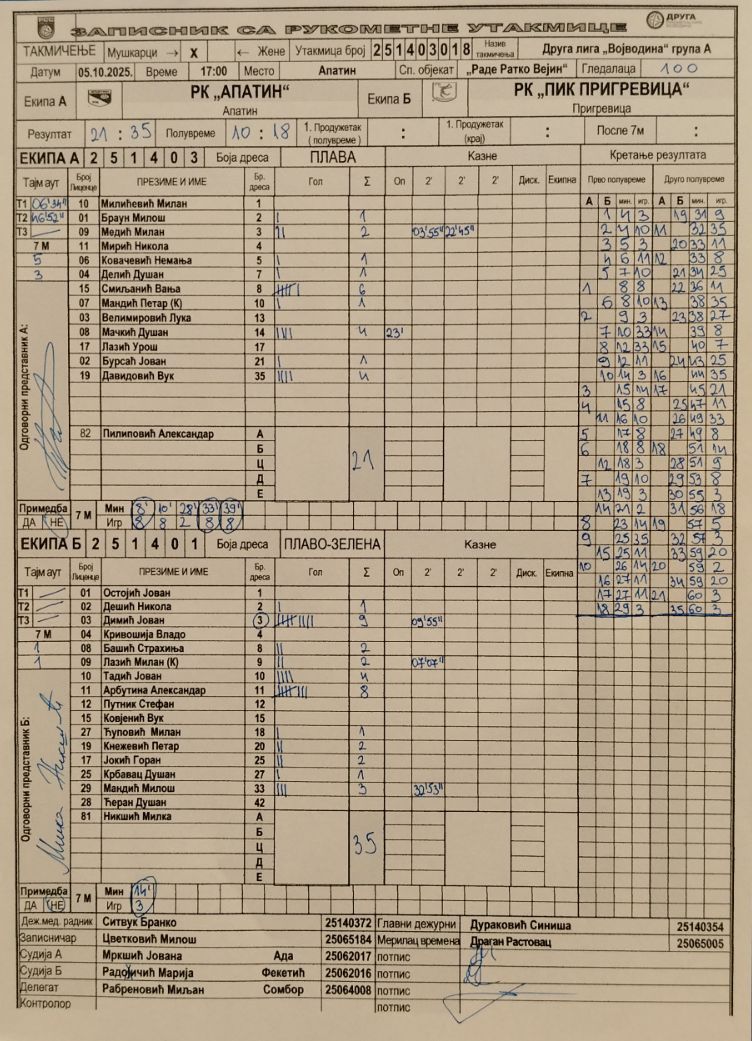 ЗАПИСНИК СА РУКОМЕТНЕ УТАКМИЦЕ
ДРУГА
ТАКМИЧЕЊЕ Мушкарци → X ← Жене Утакмица број 2 5 1 4 0 3 0 1 8 Назив такмичења Друга лига „Војводина“ група А
Датум 05.10.2025. Време 17:00 Место Апатин Сп. објекат „Раде Ратко Вејин“ Гледалаца 100
Екипа А РК „АПАТИН“ Екипа Б РК „ПИК ПРИГРЕВИЦА“
Апатин Пригревица
Резултат 21 : 35 Полувреме 10 : 18 1. Продужетак (полувреме) : 1. Продужетак (крај) : После 7м :
ЕКИПА А 2 5 1 4 0 3 Боја дреса ПЛАВА Казне Кретање резултата
Тајм аут Број Лиценце ПРЕЗИМЕ И ИМЕ Бр. дреса Гол Σ Оп 2' 2' 2' Диск. Екипна Прво полувреме Друго полувреме
А Б мин. игр. А Б мин. игр.
Т1 06'34" 10 Милићевић Милан 1
Т2 46'52" 01 Браун Милош 2 I 1
Т3 09 Медић Милан 3 II 2 03'55" 22'45"
7 М 11 Мирић Никола 4
5 06 Ковачевић Немања 5 I 1
3 04 Делић Душан 7 I 1
15 Смиљанић Вања 8 IIII I 6
07 Мандић Петар (К) 10 I 1
03 Велимировић Лука 13
08 Мачкић Душан 14 IIII 4 23'
17 Лазић Урош 17
02 Бурсаћ Јован 21 I 1
19 Давидовић Вук 35 IIII 4
Одговорни представник А:
82 Пилиповић Александар А
Б
Ц 21
Д
Е
1 4 3 19 31 9
2 4 10 11 32 35
3 5 3 20 33 11
4 6 11 12 33 8
5 7 10 21 34 25
1 8 8 22 36 11
6 8 10 13 38 35
2 9 3 23 38 27
7 10 33 14 39 8
8 12 33 15 40 7
9 12 11 24 43 25
10 14 3 16 44 35
3 15 14 17 45 21
4 15 8 25 47 11
11 16 10 26 49 33
5 17 8 27 49 8
6 18 8 18 51 14
12 18 3 28 51 9
7 19 10 29 53 8
13 19 3 30 55 3
14 21 2 31 56 18
8 23 14 19 57 5
9 25 35 32 57 3
15 25 11 33 59 20
10 26 14 20 59 2
16 27 11 34 59 20
17 27 11 21 60 3
18 29 3 35 60 3
Примедба 7 М Мин 8' 10' 28' 33' 39'
ДА НЕ Игр 8 8 2 8 8
ЕКИПА Б 2 5 1 4 0 1 Боја дреса ПЛАВО-ЗЕЛЕНА Казне
Тајм аут Број Лиценце ПРЕЗИМЕ И ИМЕ Бр. дреса Гол Σ Оп 2' 2' 2' Диск. Екипна
Т1 01 Остојић Јован 1
Т2 02 Дешић Никола 2 I 1
Т3 03 Димић Јован 3 IIII IIII 9 09'55"
7 М 04 Кривошија Владо 4
1 08 Башић Страхиња 8 II 2
1 09 Лазић Милан (К) 9 II 2 07'07"
10 Тадић Јован 10 IIII 4
11 Арбутина Александар 11 IIII III 8
12 Путник Стефан 12
15 Ковјенић Вук 15
27 Ћуповић Милан 18 I 1
19 Кнежевић Петар 20 II 2
17 Јокић Горан 25 II 2
25 Крбавац Душан 27 I 1
29 Мандић Милош 33 III 3 32'53"
28 Ћеран Душан 42
81 Никшић Милка А
Б
Ц 35
Д
Е
Одговорни представник Б: Милка Никшић
Примедба 7 М Мин 14'
ДА НЕ Игр 3
Деж.мед. радник Ситвук Бранко 25140372 Главни дежурни Дураковић Синиша 25140354
Записничар Цветковић Милош 25065184 Мерилац времена Драган Растовац 25065005
Судија А Мркшић Јована Ада 25062017 потпис
Судија Б Радојичић Марија Фекетић 25062016 потпис
Делегат Рабреновић Миљан Сомбор 25064008 потпис
Контролор потпис